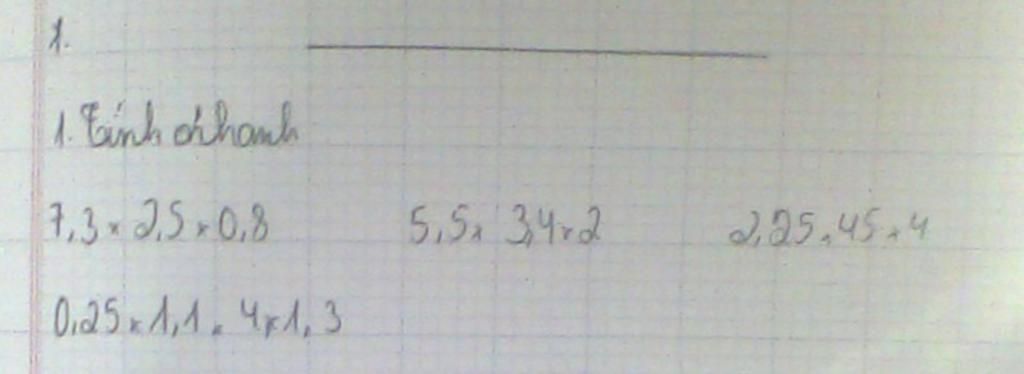 1.
1. Tính nhanh
7,3 x 2,5 x 0,8 5,5 x 3,4 x 2 2,25 x 45 x 4
0,25 x 1,1 x 4 x 1,3